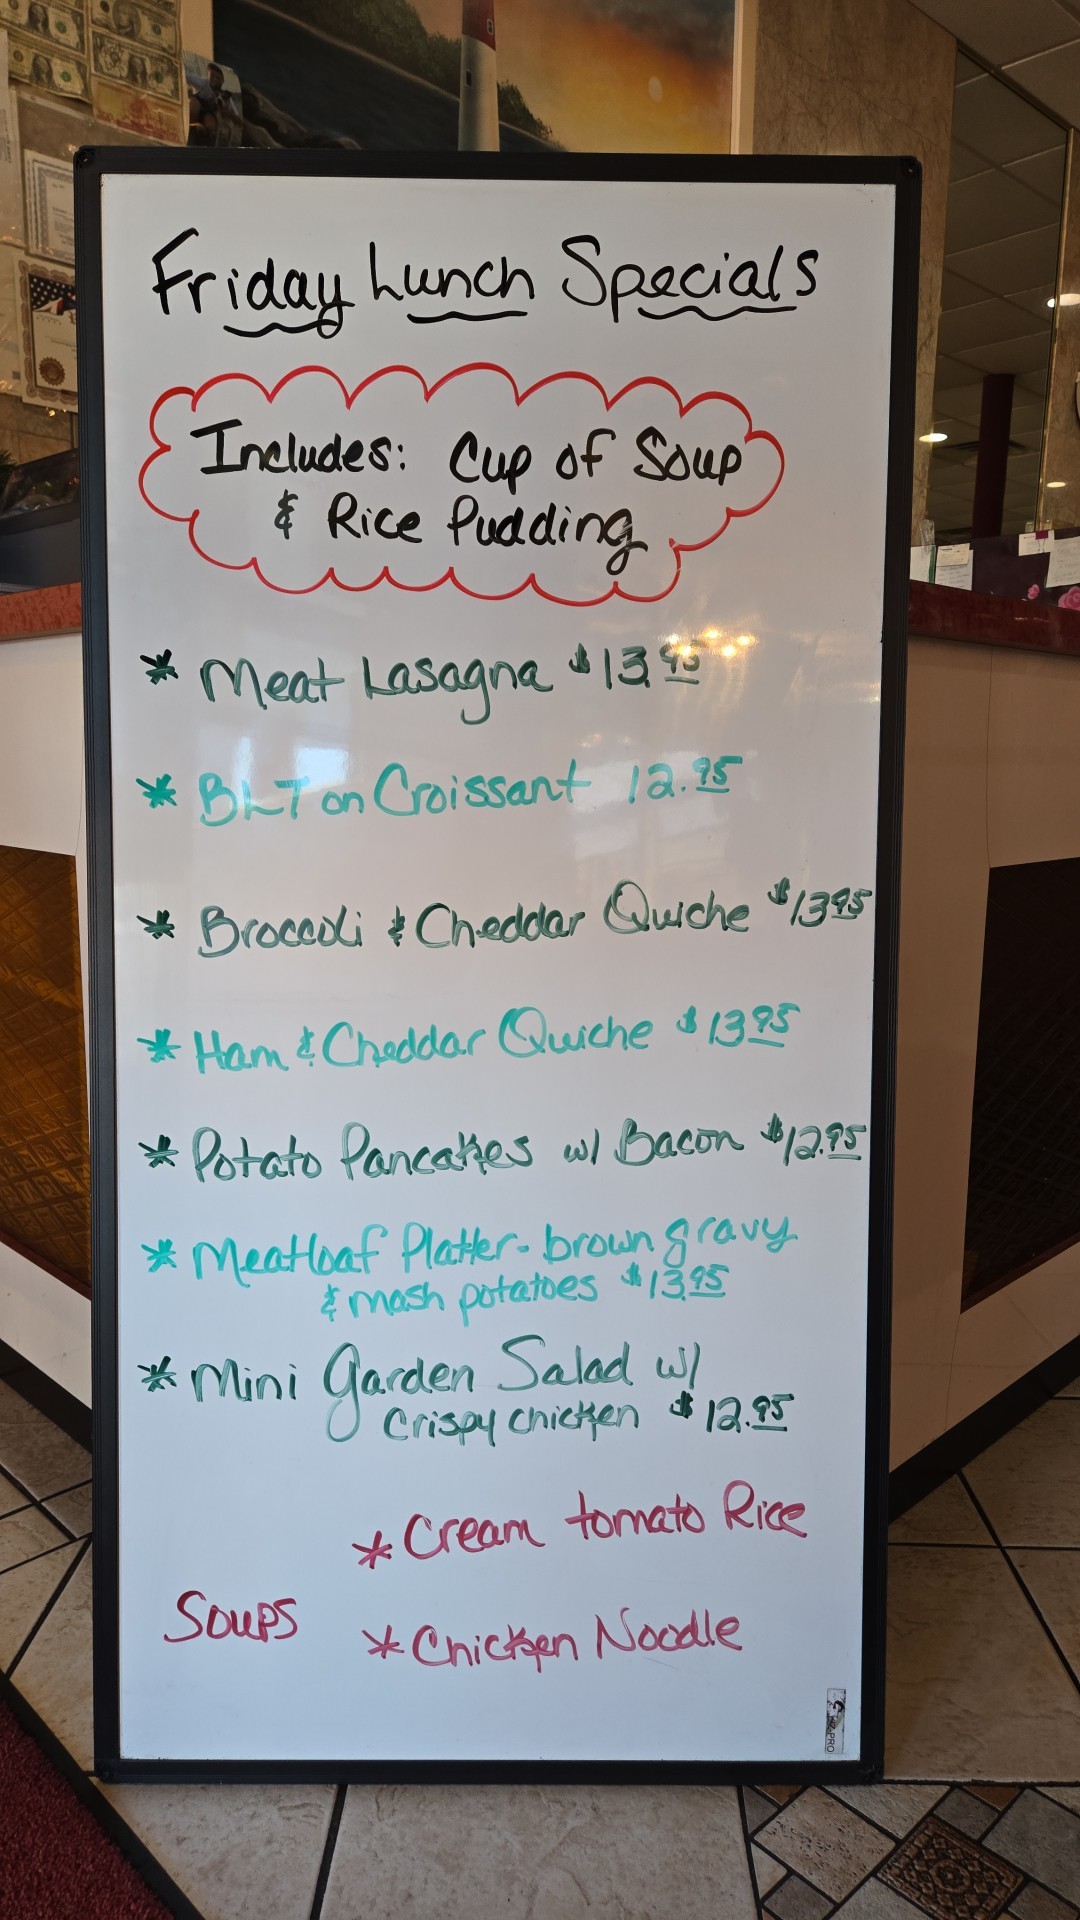 Friday Lunch Specials
Includes: Cup of Soup
& Rice Pudding
* Meat Lasagna $13.95
* BLT on Croissant 12.95
* Broccoli & Cheddar Quiche $1395
* Ham & Cheddar Quiche $1395
* Potato Pancakes w/ Bacon $12.95
* Meatloaf Platter - brown gravy
& mash potatoes $13.95
* Mini Garden Salad w/
Crispy chicken $12.95
* Cream tomato Rice
Soups
* Chicken Noodle